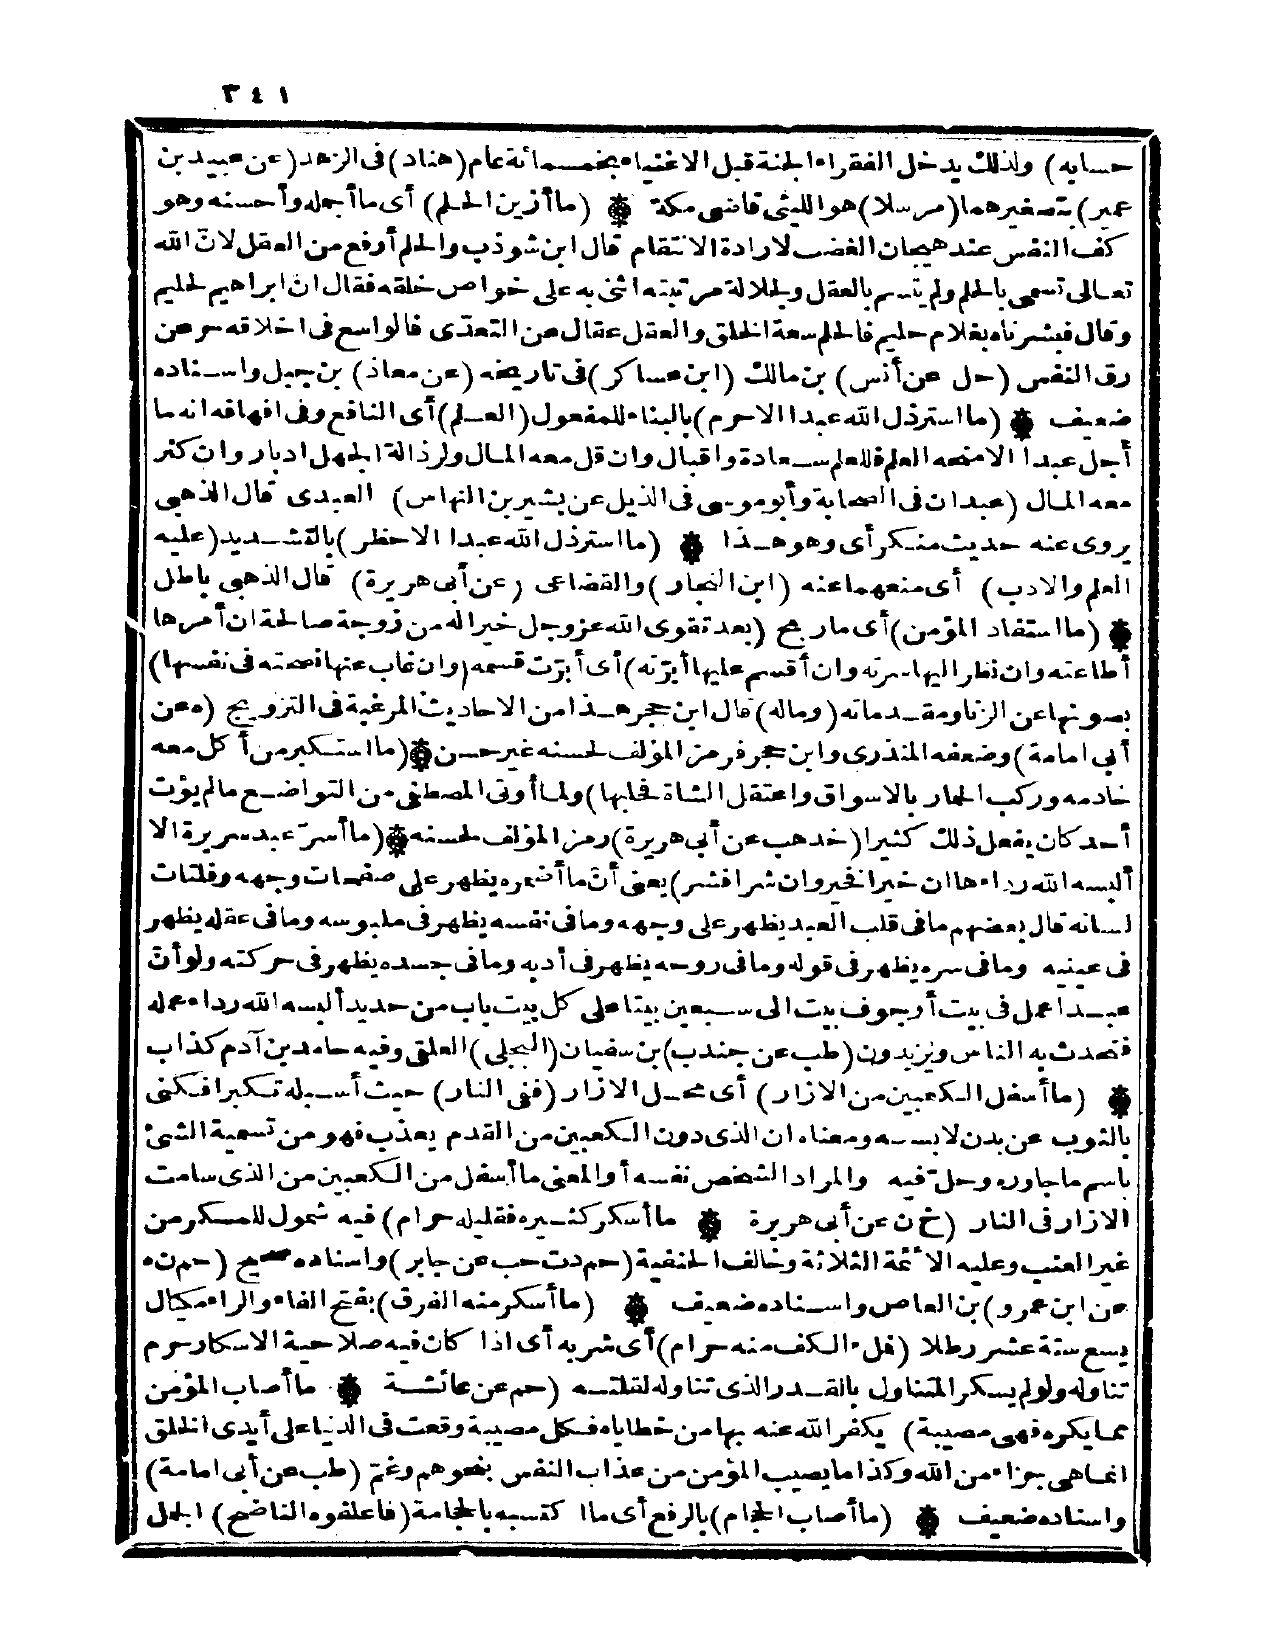 ٣٤١
حسابه) ولذلك يدخل الفقراء الجنة قبل الاغنياء بخمسمائة عام (هناد) فى الزهد (عن عبيد بن
عمير) بتصغيرهما (مرسلا) هو الليثى قاضى مكة ۞ (ما أزين الحلم) أى ما أجمله وأحسنه وهو
كف النفس عند هيجان الغضب لارادة الانتقام قال ابن شوذب والحلم أرفع من العقل لانّ الله
تعالى تسمى بالحلم ولم يتسم بالعقل ولجلالة مرتبته اثنى به على خواص خلقه فقال ان ابراهيم لحليم
وقال فبشرناه بغلام حليم فالحلم سعة الخلق والعقل عقال عن التعدّى فالواسع فى اخلاقه حر عن
رق النفس (حل عن أنس) بن مالك (ابن عساكر) فى تاريخه (عن معاذ) بن جبل واسناده
ضعيف ۞ (ما استرذل الله عبدا الا حرم) بالبناء للمفعول (العلم) أى النافع وفى افهامه انه ما
أجل عبدا الا منحه العلم فللعلم سعادة واقبال وان قل معه المال ولرذالة الجهل ادبار وان كثر
معه المال (عبدان فى الصحابة وأبو موسى فى الذيل عن بشير بن النهاس) العبدى قال الذهبى
يروى عنه حديث منكر أى وهو هذا ۞ (ما استرذل الله عبدا الا حظر) بالتشديد (عليه
العلم والادب) أى منعهما عنه (ابن النجار) والقضاعى (عن أبى هريرة) قال الذهبى باطل
۞ (ما استفاد المؤمن) أى ما ربح (بعد تقوى الله عز وجل خيرا له من زوجة صالحة ان أمرها
أطاعته وان نظر اليها سرته وان أقسم عليها أبرّته) أى أبرّت قسمه (وان غاب عنها نصحته فى نفسها)
بصونها عن الزنا ومقدماته (وماله) قال ابن حجر هذا من الاحاديث المرغبة فى التزويج (ه عن
أبى امامة) وضعفه المنذرى وابن حجر فرمز المؤلف لحسنه غير حسن ۞ (ما استكبر من أكل معه
خادمه وركب الحمار بالاسواق واعتقل الشاة فحلبها) ولما أوتى المصطفى من التواضع ما لم يؤت
أحد كان يفعل ذلك كثيرا (خد هب عن أبى هريرة) رمز المؤلف لحسنه ۞ (ما أسرّ عبد سريرة الا
ألبسه الله رداءها ان خيرا فخير وان شرا فشر) يعنى أنّ ما أضمره يظهر على صفحات وجهه وفلتات
لسانه قال بعضهم ما فى قلب العبد يظهر على وجهه وما فى نفسه يظهر فى ملبوسه وما فى عقله يظهر
فى عينيه وما فى سره يظهر فى قوله وما فى روحه يظهر فى أدبه وما فى جسده يظهر فى حركته ولو أنّ
عبدا عمل فى بيت أو جوف بيت الى سبعين بيتا على كل بيت باب من حديد ألبسه الله رداء عمله
فتحدث به الناس ويزيدون (طب عن جندب) بن سفيان (البجلى) العلقى وفيه حامد بن آدم كذاب
۞ (ما أسفل الكعبين من الازار) أى محل الازار (ففى النار) حيث أسبله تكبرا فكنى
بالثوب عن بدن لابسه ومعناه ان الذى دون الكعبين من القدم يعذب فهو من تسمية الشئ
باسم ما جاوره وحلّ فيه والمراد الشخص نفسه أو المعنى ما أسفل من الكعبين من الذى سامت
الازار فى النار (خ ن عن أبى هريرة ۞ ما أسكر كثيره فقليله حرام) فيه شمول للمسكر من
غير العنب وعليه الائمة الثلاثة وخالف الحنفية (حم د ت حب عن جابر) واسناده صحيح (حم ن ه
عن ابن عمرو) بن العاص واسناده ضعيف ۞ (ما أسكر منه الفرق) بفتح الفاء والراء مكيال
يسع ستة عشر رطلا (فملء الكف منه حرام) أى شربه أى اذا كان فيه صلاحية الاسكار حرم
تناوله ولو لم يسكر المتناول بالقدر الذى تناوله لقلته (حم عن عائشة ۞ ما أصاب المؤمن
مما يكره فهى مصيبة) يكفر الله عنه بها من خطاياه فكل مصيبة وقعت فى الدنيا على أيدى الخلق
انما هى جزاء من الله وكذا ما يصيب المؤمن من عذاب النفس بنحو هم وغمّ (طب عن أبى امامة)
واسناده ضعيف ۞ (ما أصاب الحجام) بالرفع أى ما اكتسبه بالحجامة (فاعلفوه الناضح) الجمل